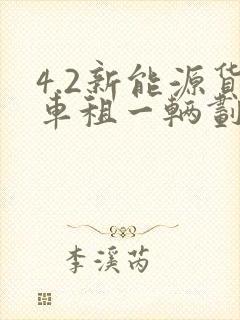 4.2新能源货
车租一辆劃
李溪芮